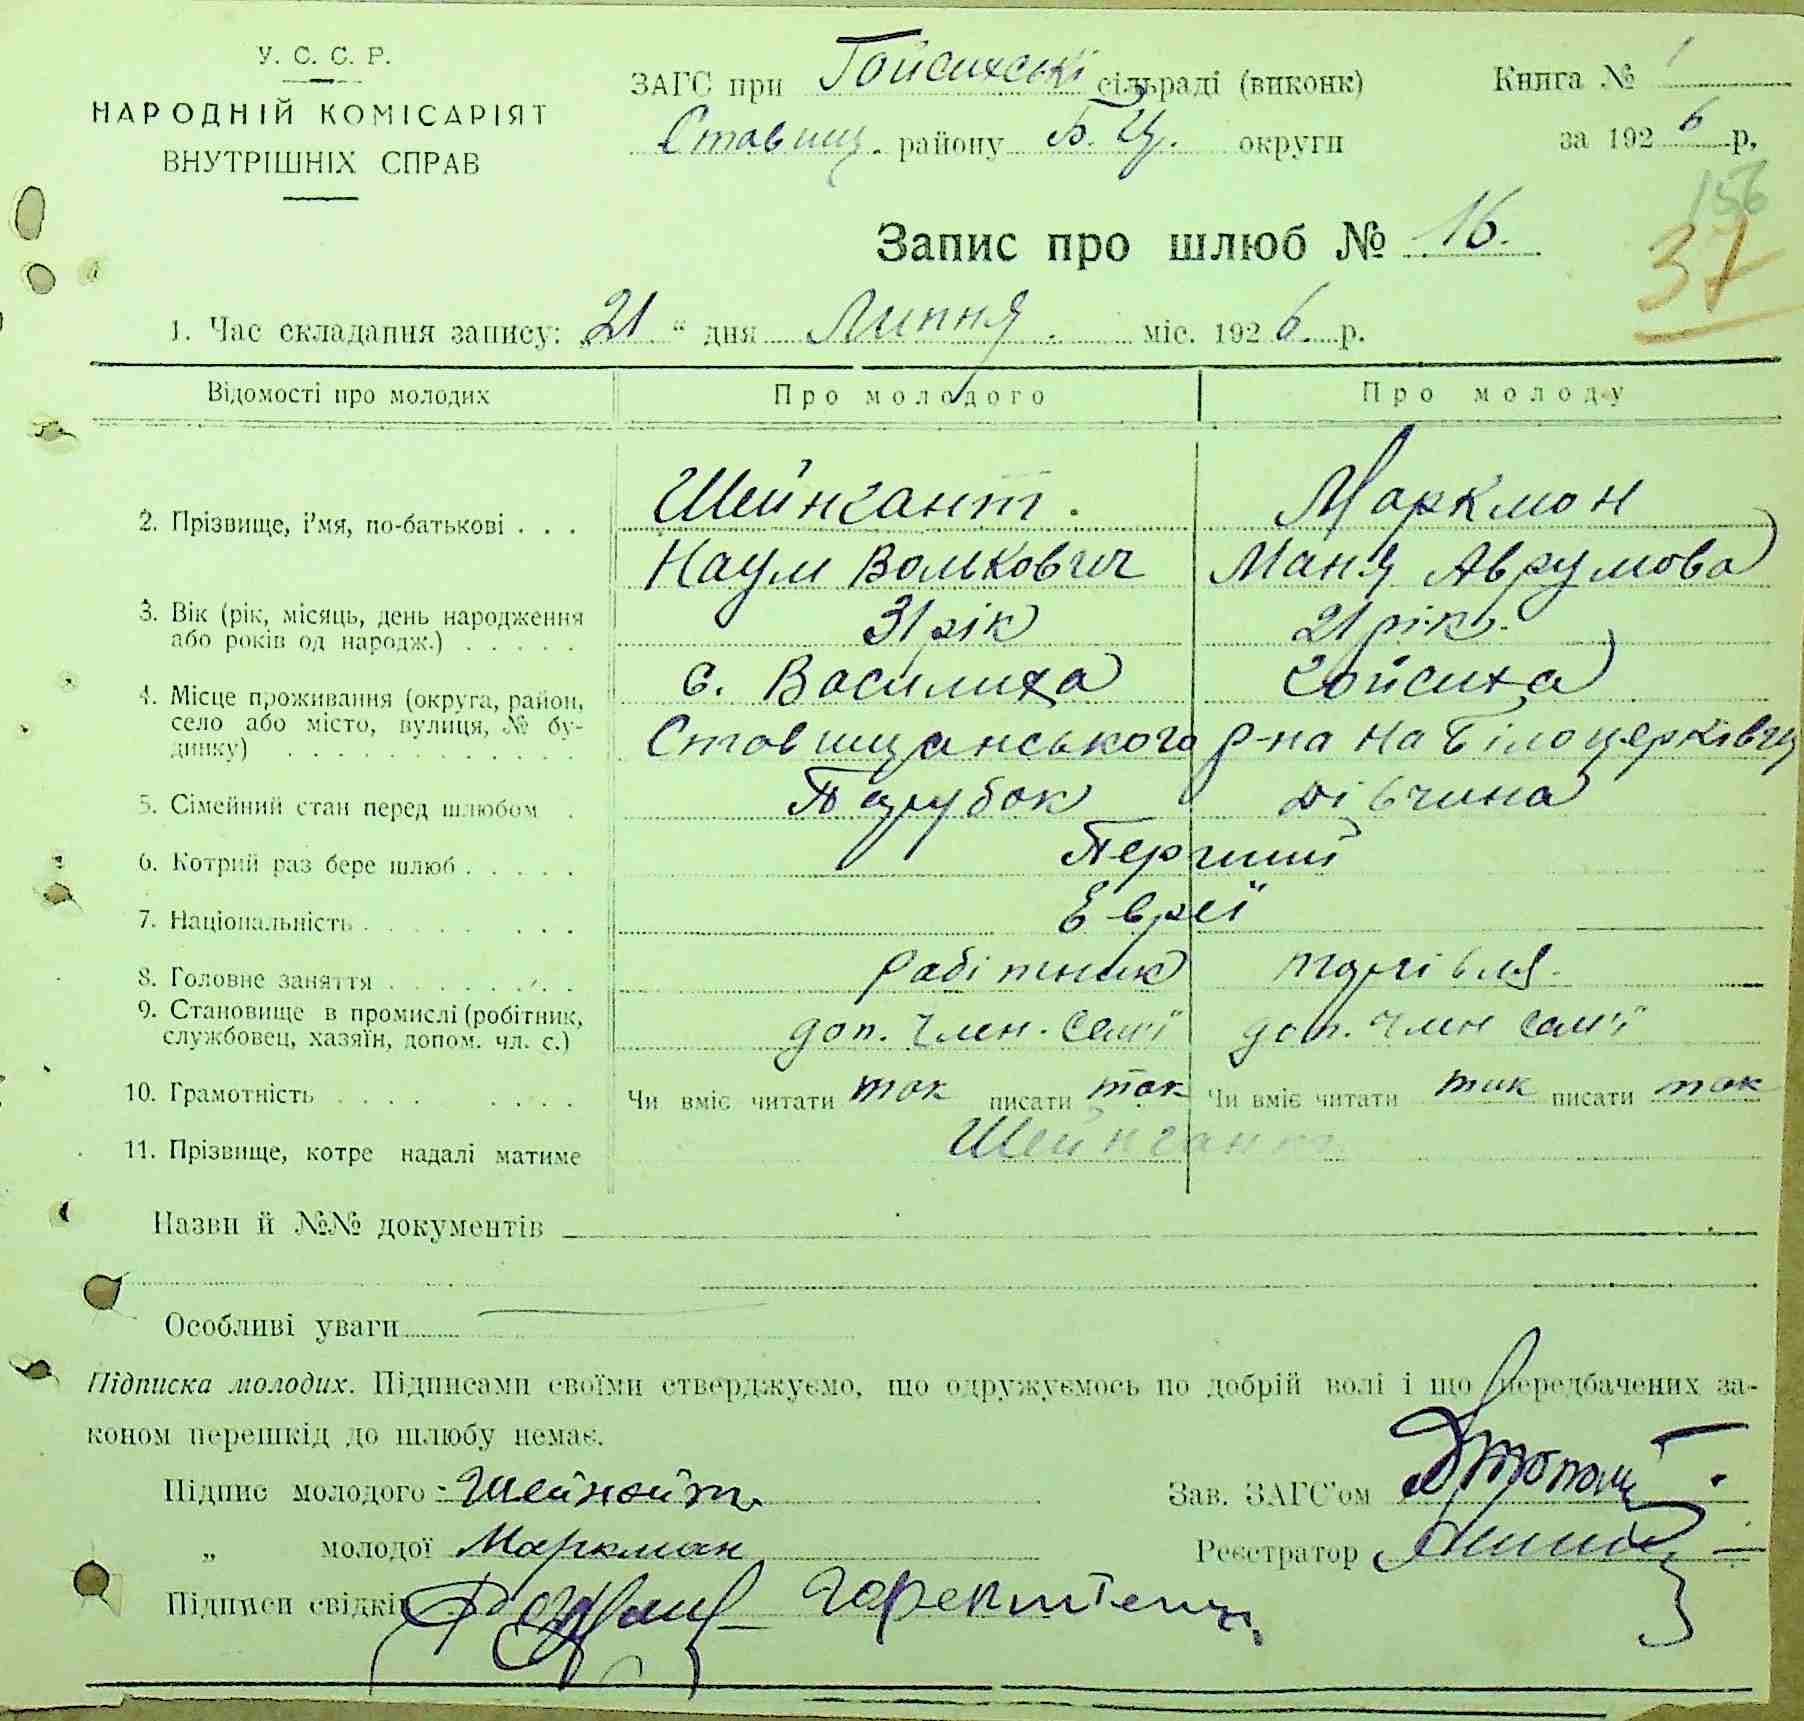 У. С. С. Р.
НАРОДНІЙ КОМІСАРІЯТ
ВНУТРІШНІХ СПРАВ
ЗАГС при Гойсихські сільраді (виконк)
Ставищ. району Б. Ц. округи
Книга № 1
за 1926 р.
156
37
Запис про шлюб № 16.
1. Час складання запису: 21 " дня Липня. міс. 1926. р.
Відомості про молодих
Про молодого
Про молоду
2. Прізвище, і'мя, по-батькові . . .
Шейнгант.
Маркмон
Наум Волькович
Маня Аврумова
3. Вік (рік, місяць, день народження
або років од народж.) . . . . .
31 рік
21 рік.
4. Місце проживання (округа, район,
село або місто, вулиця, № бу-
динку) . . . . . . . . . . . .
с. Василиха
Гойсиха
Ставищанського р-на на Білоцерківщ
5. Сімейний стан перед шлюбом .
Парубок
дівчина
6. Котрий раз бере шлюб . . . . .
Перший
7. Національність . . . . . . . .
Євреї
8. Головне заняття . . . . . . .
рабітник
торгівля.
9. Становище в промислі (робітник,
службовец, хазяїн, допом. чл. с.)
доп. член. семї
доп. член семї
10. Грамотність . . . . . . . .
Чи вміє читати так писати так
Чи вміє читати так писати так
11. Прізвище, котре надалі матиме
Шейнгант
Назви й №№ документів
Особливі уваги
Підписка молодих. Підписами своїми стверджуємо, що одружуємось по добрій волі і що передбачених за-
коном перешкід до шлюбу немає.
Підпис молодого
Зав. ЗАГС'ом
" молодої Маркман
Реєстратор
Підписи свідків